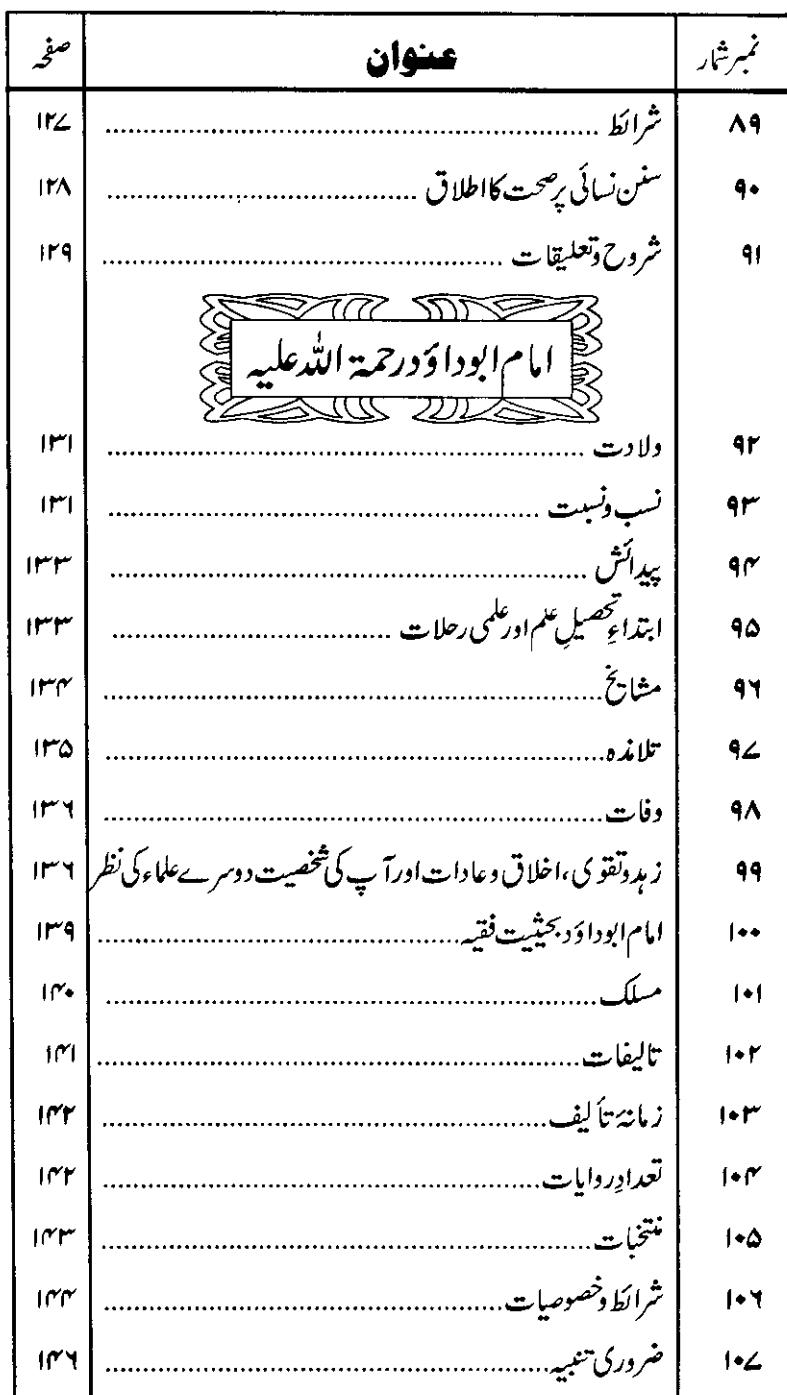 نمبر شمار عنوان صفحہ
۸۹ شرائط ۱۲۷
۹۰ سنن نسائی پر صحت کا اطلاق ۱۲۸
۹۱ شروح و تعلیقات ۱۲۹
امام ابوداؤد رحمۃ اللہ علیہ
۹۲ ولادت ۱۳۱
۹۳ نسب و نسبت ۱۳۱
۹۴ پیدائش ۱۳۳
۹۵ ابتداءِ تحصیلِ علم اور علمی رحلات ۱۳۳
۹۶ مشایخ ۱۳۴
۹۷ تلامذہ ۱۳۵
۹۸ وفات ۱۳۶
۹۹ زہد و تقوی، اخلاق و عادات اور آپ کی شخصیت دوسرے علماء کی نظر ۱۳۶
۱۰۰ امام ابوداؤد بحیثیت فقیہ ۱۳۹
۱۰۱ مسلک ۱۴۰
۱۰۲ تالیفات ۱۴۱
۱۰۳ زمانۂ تألیف ۱۴۲
۱۰۴ تعدادِ روایات ۱۴۲
۱۰۵ منتخبات ۱۴۳
۱۰۶ شرائط و خصوصیات ۱۴۴
۱۰۷ ضروری تنبیہ ۱۴۶